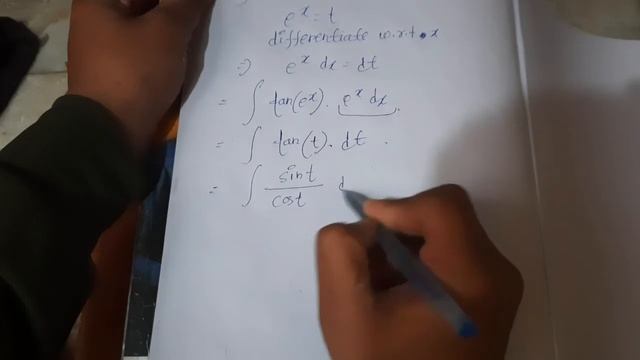 e^x = t
differentiate w.r.t. x
⇒ e^x dx = dt
= ∫ tan(e^x). e^x dx.
= ∫ tan(t). dt.
= ∫ sint/cost d